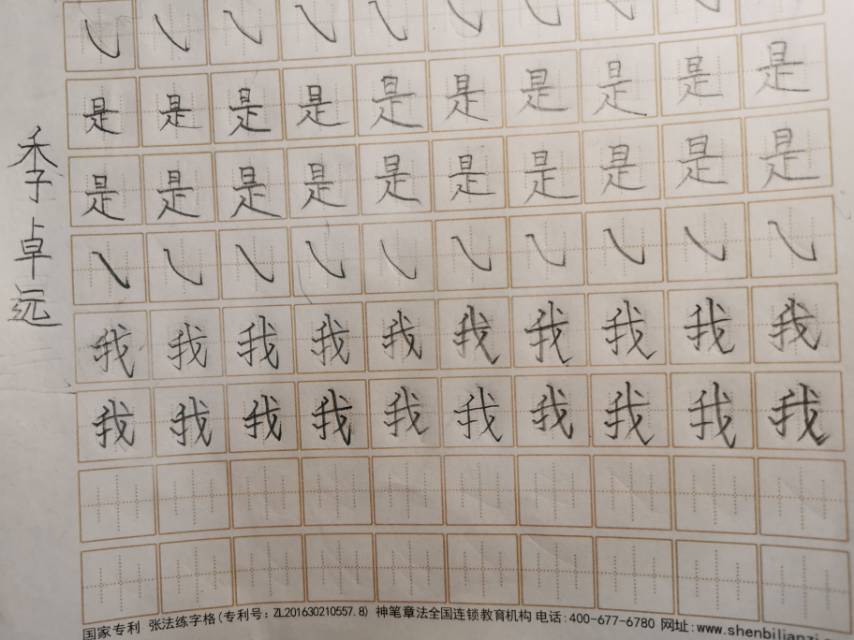 是是是是是是是是是是
是是是是是是是是是是
我我我我我我我我我我
我我我我我我我我我我
季卓远
国家专利 张法练字格(专利号：ZL201630210557.8) 神笔章法全国连锁教育机构 电话:400-677-6780 网址:www.shenbilianzi.